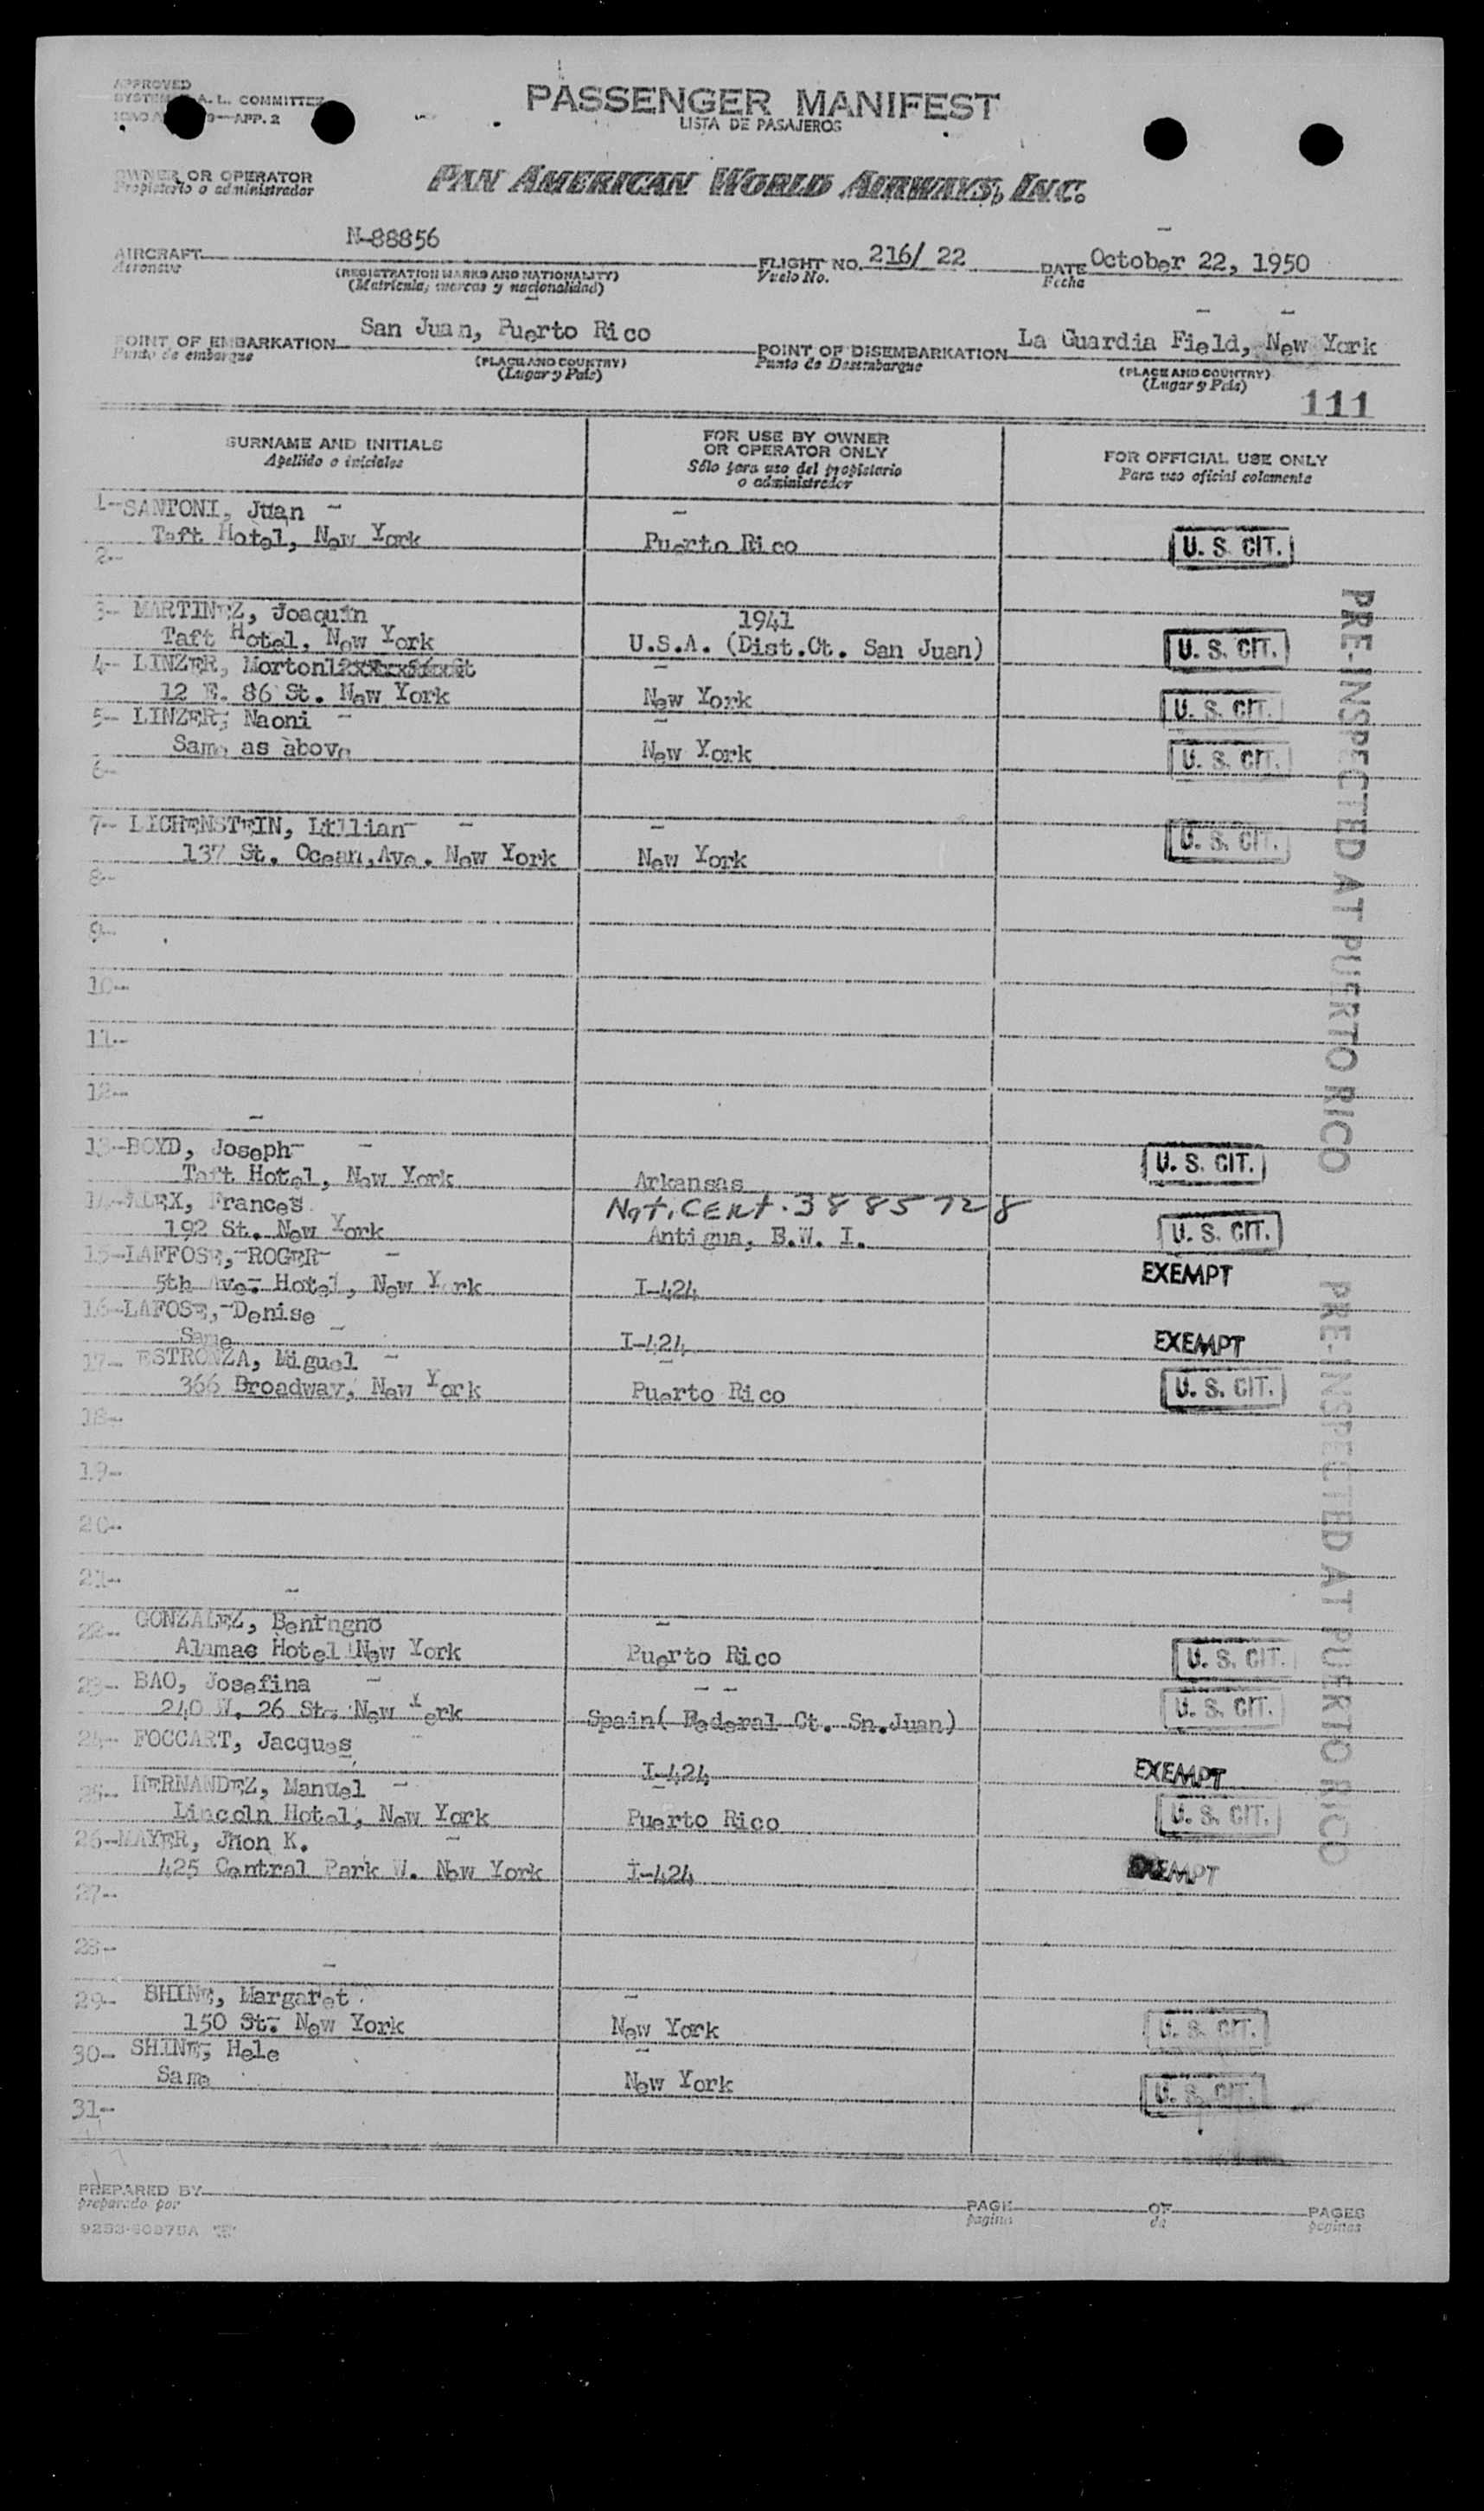 APPROVED
A. L. COMMITTEE
APP. 2
PASSENGER MANIFEST
LISTA DE PASAJEROS
OWNER OR OPERATOR
Propietario o administrador
PAN AMERICAN WORLD AIRWAYS, INC.
AIRCRAFT N-88856
Aeronave
(REGISTRATION MARKS AND NATIONALITY)
(Matricula, marcas y nacionalidad)
FLIGHT NO. 216/ 22
Vuelo No.
DATE October 22, 1950
Fecha
POINT OF EMBARKATION San Juan, Puerto Rico
Punto de embarque
(PLACE AND COUNTRY)
(Lugar y País)
POINT OF DISEMBARKATION La Guardia Field, New York
Punto de Desembarque
(PLACE AND COUNTRY)
(Lugar y País)
111
SURNAME AND INITIALS
Apellido o iniciales
FOR USE BY OWNER
OR OPERATOR ONLY
Sólo para uso del propietario
o administrador
FOR OFFICIAL USE ONLY
Para uso oficial solamente
1-SANTONI, Juan -
Taft Hotel, New York Puerto Rico U. S. CIT.
2-
3- MARTINEZ, Joaquin 1941
Taft Hotel, New York U.S.A. (Dist.Ct. San Juan) U. S. CIT.
4- LINZER, Morton
12 E. 86 St. New York New York U. S. CIT.
5- LINZER, Naoni -
Same as above New York U. S. CIT.
6-
7- LICHENSTEIN, Lillian - -
137 St. Ocean,Ave. New York New York U. S. CIT.
8-
9-
10-
11-
12-
13-BOYD, Joseph- -
Taft Hotel, New York Arkansas U. S. CIT.
14-ALEX, Frances Nat. CERt. 3885728
192 St. New York Antigua, B.W. I. U. S. CIT.
15-LAFFOSE,-ROGER- -
5th Ave. Hotel, New York I-424 EXEMPT
16-LAFOSE,-Denise
Same - I-424 EXEMPT
17- ESTRONZA, Miguel -
366 Broadway, New York Puerto Rico U. S. CIT.
18-
19-
20-
21-
22- GONZALEZ, Beningno
Alamac Hotel New York Puerto Rico U. S. CIT.
23- BAO, Josefina -
240 W. 26 St. New York Spain( Federal Ct. Sn.Juan) U. S. CIT.
24- FOCCART, Jacques
I-424 EXEMPT
25- HERNANDEZ, Manuel -
Lincoln Hotel, New York Puerto Rico U. S. CIT.
26-MAYER, Jhon K. -
425 Central Park W. New York I-424 EXEMPT
27-
28-
29- SHINE, Margaret
150 St. New York New York U. S. CIT.
30- SHINE, Hele
Same New York U. S. CIT.
31-
PRE-INSPECTED AT PUERTO RICO
PRE-INSPECTED AT PUERTO RICO
PREPARED BY
preparado por
PAGE
pagina
OF
de
PAGES
paginas